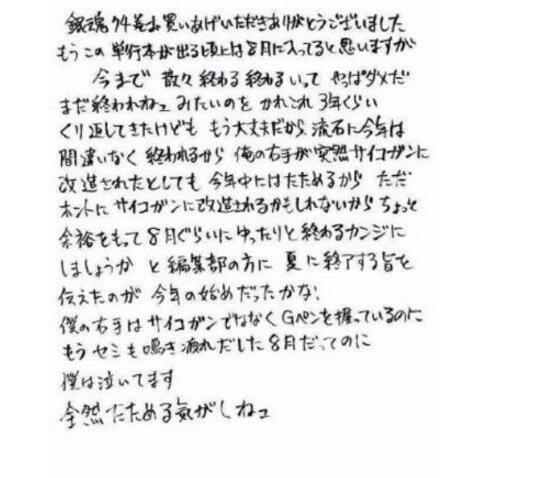 銀魂74巻お買いあげいただきありがとうございました
もうこの単行本が出る頃には8月に入ってると思いますが
今まで散々終わる終わるいって やっぱダメだ
まだ終われねェ みたいのを かれこれ3年くらい
くり返してきたけども もう大丈夫だから 流石に今年は
間違いなく 終われるから 俺の右手が突然サイコガンに
改造されたとしても 今年中にはたためるから ただ
ホントに サイコガンに改造されるかもしれないから ちょっと
余裕をもって 8月ぐらいに ゆったりと終わるカンジに
しましょうか と 編集部の方に 夏に終了する旨を
伝えたのが 今年の始めだったかな!
僕の右手はサイコガンではなく Gペンを握っているのに
もう セミも鳴き疲れだした8月だってのに
僕は泣いてます
全然たためる気がしねェ